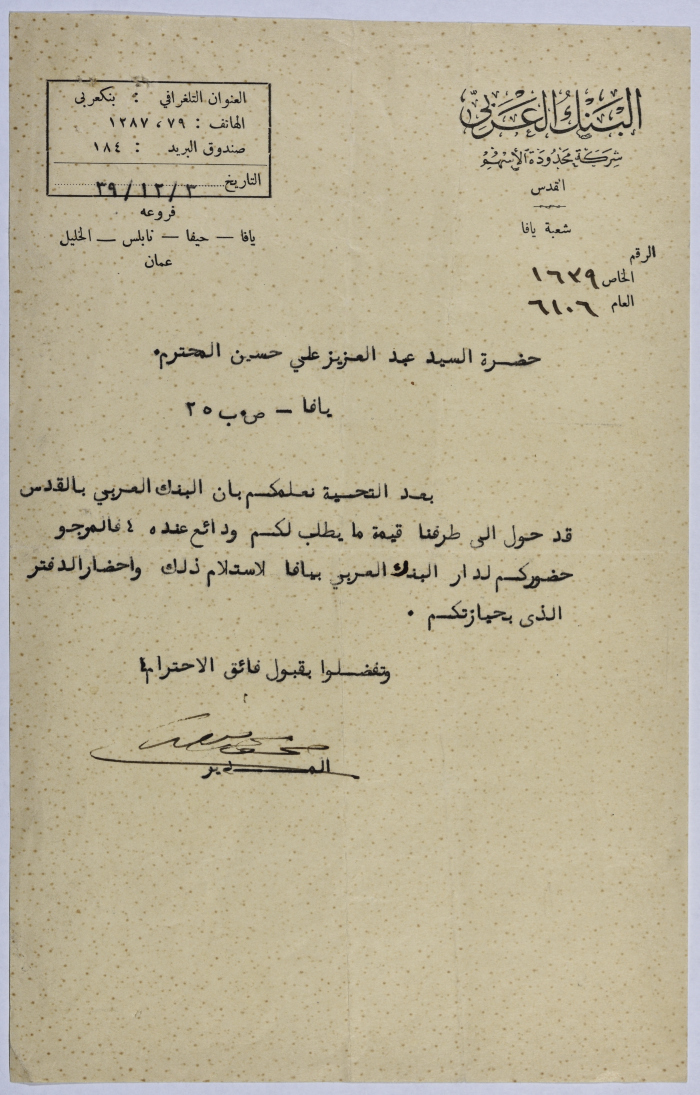 البنك العربي
شركة محدودة الأسهم
القدس
شعبة يافا
الرقم
الخاص ١٦٣٩
العام ٦١٠٦
العنوان التلغرافي : بنكعربى
الهاتف : ٧٩ ، ١٢٨٧
صندوق البريد : ١٨٤
التاريخ ٣٩/١٢/٣
فروعه
يافا — حيفا — نابلس — الخليل
عمان
حضرة السيد عبد العزيز علي حسين المحترم.
يافا – ص.ب ٢٥
بعد التحية نعلمكم بان البنك العربي بالقدس
قد حول الى طرفنا قيمة ما يطلب لكم ودائع عنده ٤ فالمرجو
حضوركم لدار البنك العربي بيافا لاستلام ذلك واحضار الدفتر
الذى بحيازتكم .
وتفضلوا بقبول فائق الاحترام ٤
المدير